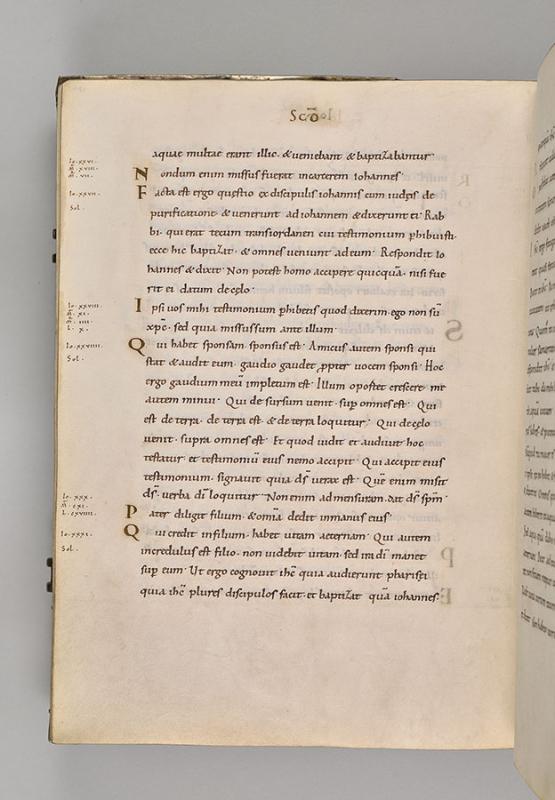 Scdō
aquae multae erant illic · & ueniebant & baptizabantur
Nondum enim missus fuerat incarcerem iohannes
Facta est ergo questio ex discipulis iohannis cum iudeis de
purificatione · & uenerunt ad iohannem & dixerunt ei · Rab
bi · qui erat tecum transiordanen cui testimonium phibuisti ·
ecce hic baptizat · & omnes ueniunt adeum · Respondit io
hannes & dixit · Non potest homo accipere quicquā · nisi fue
rit ei datum decęlo ·
Ipsi uos mihi testimonium phibetis quod dixerim · ego non sū
xp̄c · sed quia missussum ante illum ·
Qui habet sponsam sponsus est · Amicus autem sponsi qui
stat & audit eum · gaudio gaudet ꝓpter uocem sponsi · Hoc
ergo gaudium meū impletum est · Illum oportet crescere me
autem minui · Qui de sursum uenit · sup̄ omnes est · Qui
est de terra · de terra est · & de terra loquitur · Qui decęlo
uenit · supra omnes est · Et quod uidit et audiuit hoc
testatur · et testimoniū eius nemo accipit · Qui accipit eius
testimonium · signauit quia dꝰ uerax est · Quē enim misit
dꝰ · uerba dī loquitur · Non enim ad mensuram dat dꝰ spm̄
Pater diligit filium · & om̄ia dedit inmanus eius
Qui credit infilium · habet uitam aeternam · Qui autem
incredulus est filio · non uidebit uitam · sed ira dī manet
sup̄ eum · Ut ergo cognouit ih̄c quia audierunt pharisei
quia ih̄c plures discipulos facit · et baptizat quā iohannes ·
Io · xxvi ·
m̄ · xviii ·
m̄ · vii ·
Io · xxvii ·
Sol ·
Io · xxviii ·
m̄ · xi ·
m̄ · iiii ·
L · x ·
Io · xxviiii ·
Sol ·
Io · xxx ·
m̄ · cxi ·
L · cxviiii ·
Io · xxxi ·
Sol ·